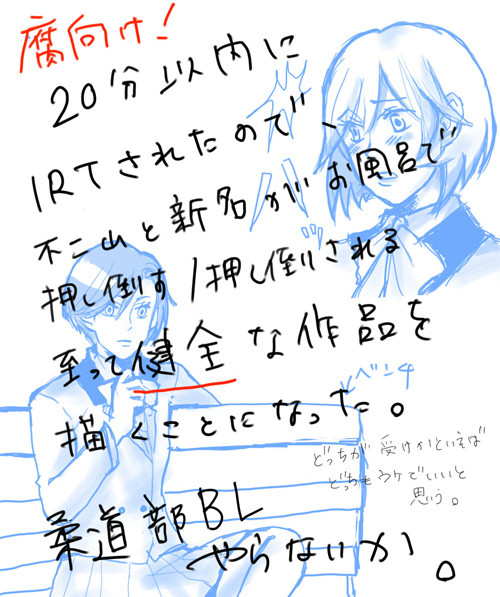 腐向け!
20分以内に
1RTされたので、
不二山と新名がお風呂で
押し倒す/押し倒される
至って健全な作品を
描くことになった。
ベンチ
どっちが受けかといえば
どっちもウケでいいと
思う。
柔道部BL
やらないか。